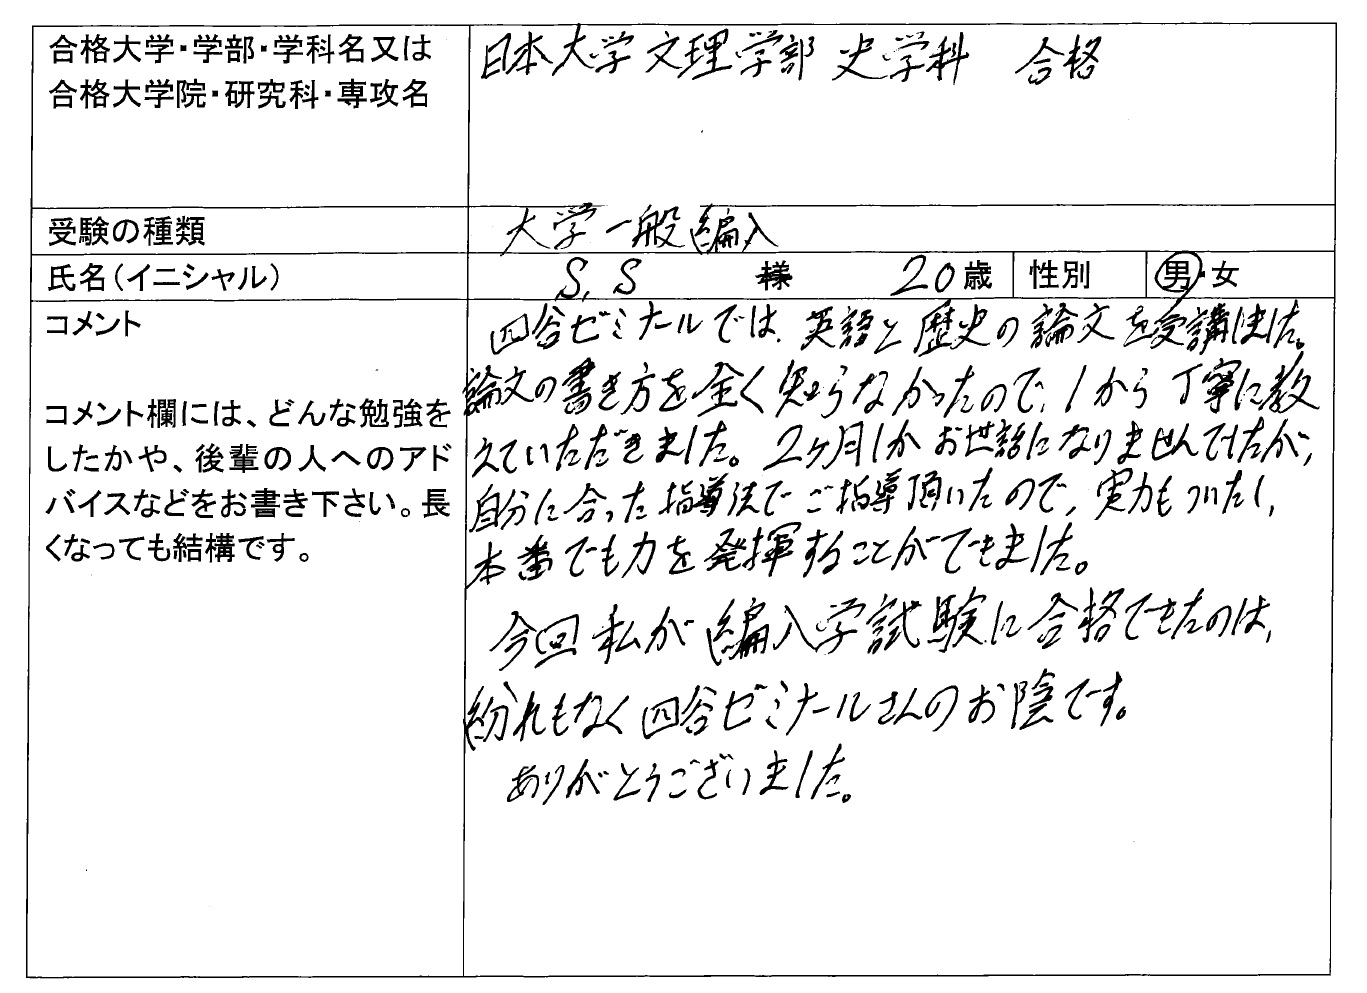 合格大学・学部・学科名又は
合格大学院・研究科・専攻名
日本大学文理学部 史学科 合格
受験の種類
大学一般編入
氏名(イニシャル)
S.S 様 20歳 性別 男・女
コメント
コメント欄には、どんな勉強を
したかや、後輩の人へのアド
バイスなどをお書き下さい。長
くなっても結構です。
四谷ゼミナールでは、英語と歴史の論文を受講しました。
論文の書き方を全く知らなかったので、1から丁寧に教
えていただきました。2ヶ月しかお世話になりませんでしたが、
自分に合った指導法でご指導頂いたので、実力もついたし、
本番でも力を発揮することができました。
今回私が編入学試験に合格できたのは、
紛れもなく四谷ゼミナールさんのお陰です。
ありがとうございました。